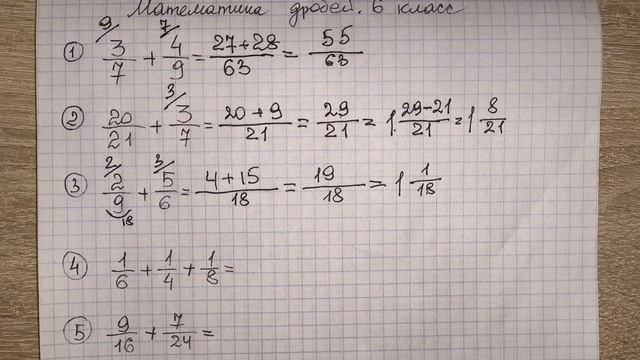 Математика дробей. 6 класс
① 9/ 3/7 + 7/ 4/9 = 27+28/63 = 55/63
② 20/21 + 3/ 3/7 = 20+9/21 = 29/21 = 1 29-21/21 = 1 8/21
③ 2/ 2/9 + 3/ 5/6 = 4+15/18 = 19/18 = 1 1/18
18
④ 1/6 + 1/4 + 1/8 =
⑤ 9/16 + 7/24 =